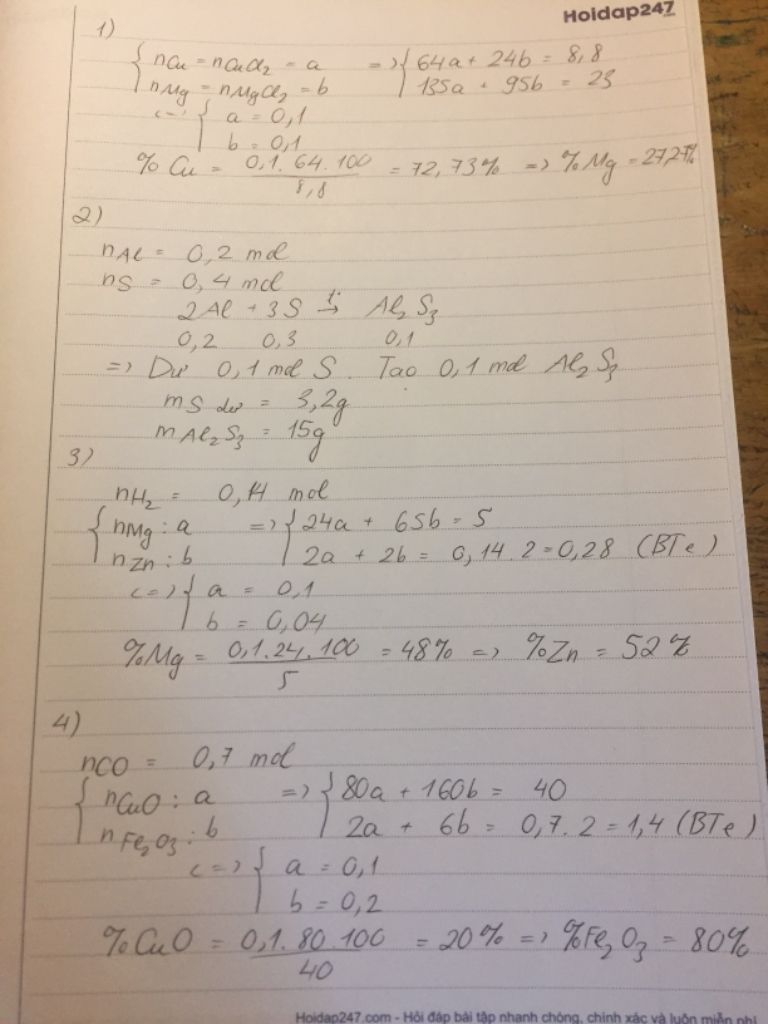 Hoidap247
.com
1)
{ nCu = nCuCl₂ = a => { 64a + 24b = 8,8
nMg = nMgCl₂ = b 135a + 95b = 23
<=> { a = 0,1
b = 0,1
% Cu = 0,1. 64. 100 / 8,8 = 72,73% => % Mg = 27,27%
2)
nAl = 0,2 mol
nS = 0,4 mol
2Al + 3S t°→ Al₂S₃
0,2 0,3 0,1
=> Dư 0,1 mol S. Tạo 0,1 mol Al₂S₃
mS dư = 3,2g
mAl₂S₃ = 15g
3)
nH₂ = 0,14 mol
{ nMg : a => { 24a + 65b = 5
nZn : b 2a + 2b = 0,14. 2 = 0,28 (BTe)
<=> { a = 0,1
b = 0,04
%Mg = 0,1. 24. 100 / 5 = 48% => %Zn = 52%
4)
nCO = 0,7 mol
{ nCuO : a => { 80a + 160b = 40
nFe₂O₃ : b 2a + 6b = 0,7. 2 = 1,4 (BTe)
<=> { a = 0,1
b = 0,2
%CuO = 0,1. 80. 100 / 40 = 20% => %Fe₂O₃ = 80%
Hoidap247.com - Hỏi đáp bài tập nhanh chóng, chính xác và luôn miễn phí